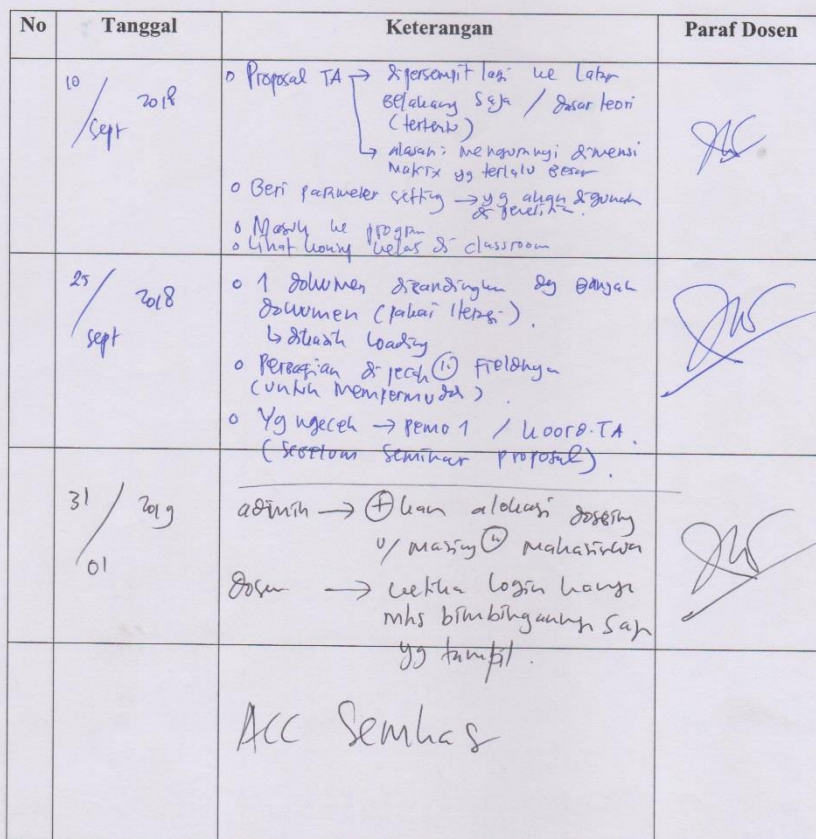 No Tanggal Keterangan Paraf Dosen
10/Sept 2018
o Proposal TA → dipersempit lagi ke Latar
Belakang Saja / dasar teori
(tertentu)
↳ alasan: mengurangi dimensi
Matrix yg terlalu besar
o Beri parameter setting → yg akan digunak
di penelitia.
o Masuk ke program
o Lihat kelas di classroom
25/sept 2018
o 1 dokumen dibandingkn dg banyak
dokumen (pakai Iterasi).
↳ dikasih loading
o Pembagian di pecah (") Fieldnya
(untuk mempermudah).
o Yg ngecek → pemb 1 / koord.TA.
(sebelum seminar proposal).
31/01 2019
admin → (+)kan alokasi dosbing
u/ masing (") mahasiswa
dosen → ketika login hanya
mhs bimbingannya saja
yg tampil.
ACC Semhas